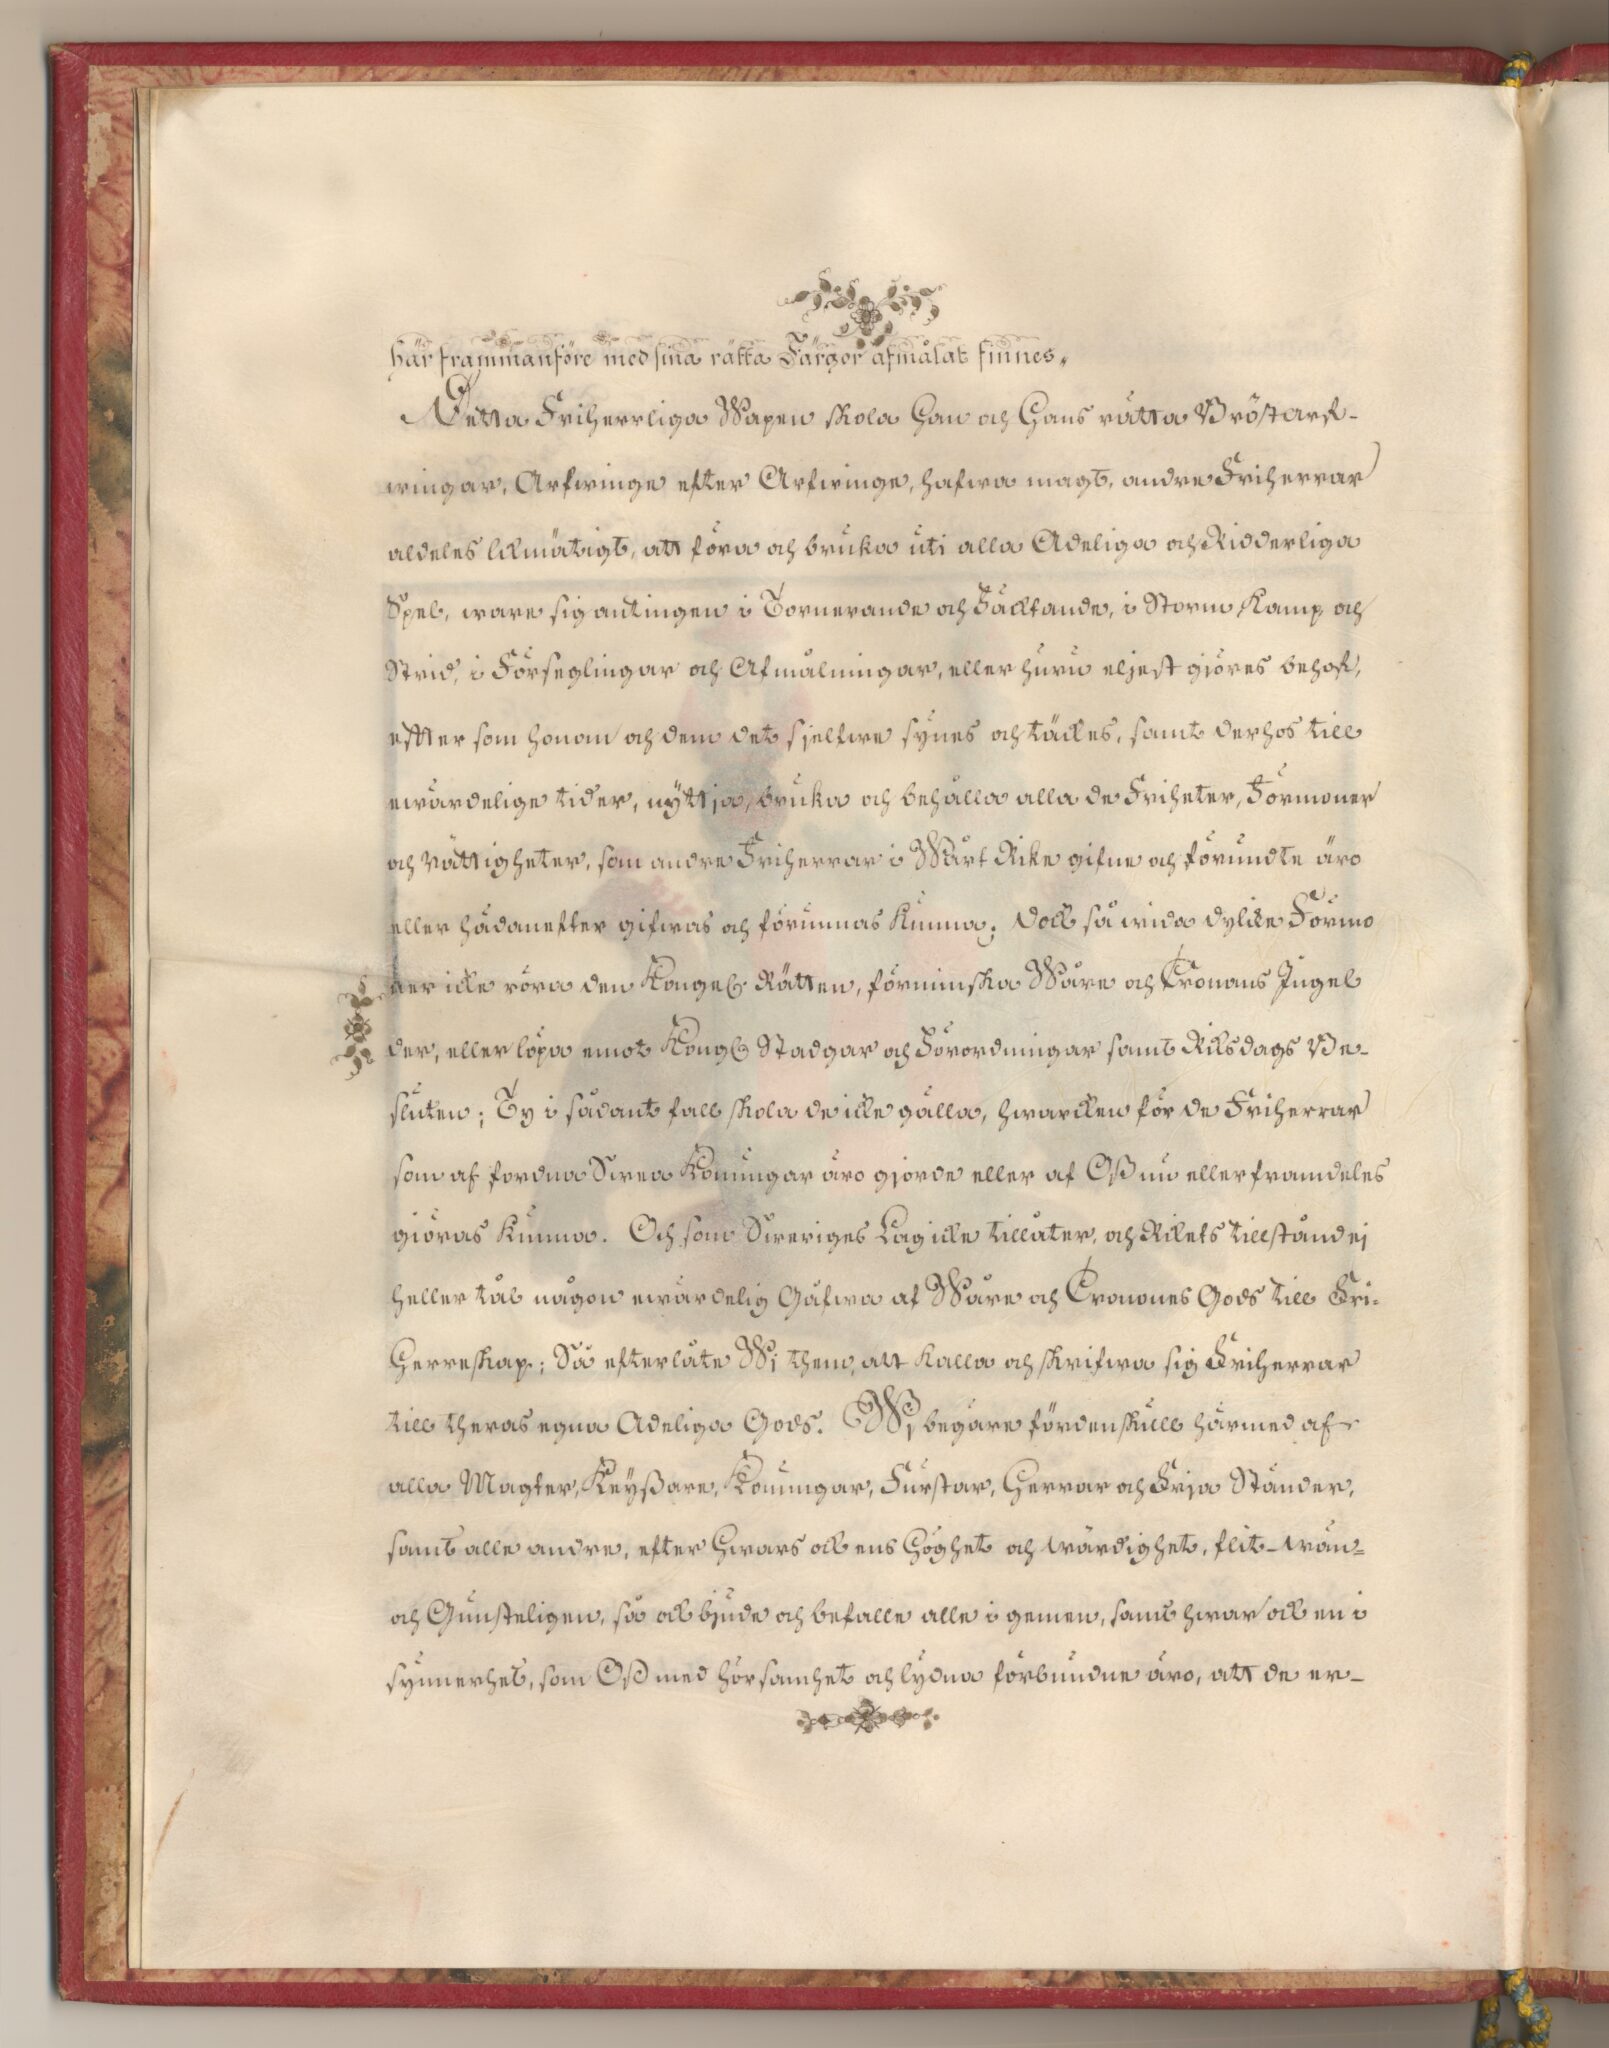 här frammanföre med sina rätta Färgor afmålat finnes.
Detta Friherrliga Wapen skola Han och Hans rätta Bröstarf-
wingar, Arfwinge efter Arfwinge, hafwa magt, andre Friherrar
aldeles likmätigt, att föra och bruka uti alla Adeliga och Ridderliga
Spel, ware sig antingen i Tornerande och Fäcktande, i Storm Kamp och
Strid, i Förseglingar och Afmålningar, eller huru eljest giöres behof,
effter som honom och dem det sjelfwe synes och täckes, samt derhos till
ewärdelige tider, nyttja, bruka och behålla alla de Friheter, Förmoner
och Rättigheter, som andre Friherrar i Wårt Rike gifne och förundte äro
eller hädanefter gifwas och förunnas kunna; dock så wida dylike Förmo
ner icke röra den Kongel. Rätten, förminska Wåre och Cronans Ingel
der, eller löpa emot Kongl. Stadgar och Förordningar samt Riksdags Be-
sluten; Ty i sådant fall skola de icke gälla, hwarcken för de Friherrar
som af fordna Swea Konungar äro gjorde eller af Oß nu eller framdeles
giöras kunna. Och som Sweriges Lag icke tillåter, och Rikets tillstånd ej
heller tål någon ewärdelig Gåfwa af Wåre och Cronones Gods till Fri-
Herreskap; Så efterlåte Wi them, att kalla och skrifwa sig Friherrar
till theras egna Adeliga Gods. Wi begäre fördenskull härmed af
alla Magter, Keyßare, Konungar, Furstar, Herrar och Frja Ständer,
samt alle andre, efter Hwars ock ens Höghet och wärdighet, flit- wän=
och Gunsteligen, så ock bjude och befalle alle i gemen, samt hwar ock en i
synnerhet, som Oß med hörsamhet och lydna förbundne äro, att de er-